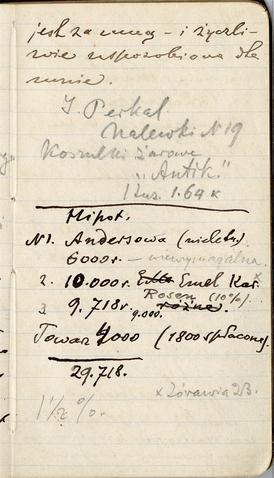 jest za mną – i życzli-
wie usposobiona dla
mnie.
J. Perkal
Nalewki N 19
Koszulki żarowe
"Antik"
1 tuz. 1.64 k
Hipot.
N1. Andersowa
6000 r. – niewymagalna
2. 10.000 r. Emel Kar. x
Rosen (10%)
3 9.718 r. różne.
9.000.
Towar 4000 (1800 spłacone)
29.718.
x Żórawia 23.
1 1/2 %.